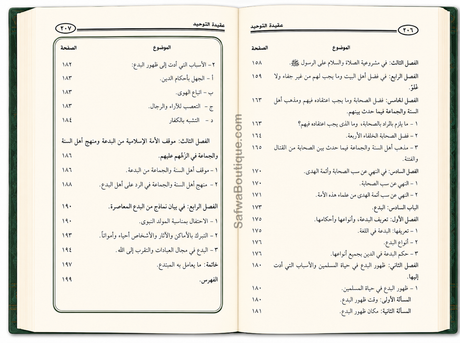 ٢٠٦ عقيدة التوحيد
الموضوع الصفحة
الفصل الثالث: في مشروعية الصلاة والسلام على الرسول ﷺ ١٥٨
الفصل الرابع: في فضل أهل البيت وما يجب لهم من غير جفاء ولا ١٥٩
غلو.
الفصل الخامس: فضل الصحابة وما يجب اعتقاده فيهم ومذهب أهل ١٦٣
السنة والجماعة فيما حدث بينهم.
١ - ما يلزم بالراد بالصحابة، وما الذي يجب اعتقاده فيهم؟ ١٦٣
٢ - فضل الصحابة الخلفاء الأربعة. ١٦٤
٣ - مذهب أهل السنة والجماعة فيما حدث بين الصحابة من القتال ١٦٥
والفتنة.
الفصل السادس: في النهي عن سب الصحابة وأئمة الهدى. ١٧٠
١ - النهي عن سب الصحابة. ١٧٠
٢ - النهي عن سب أئمة الهدى من علماء هذه الأمة. ١٧١
الباب السادس: البدع ١٧٣
الفصل الأول: تعريف البدعة، وأنواعها وأحكامها. ١٧٥
١ - تعريفها: البدعة في اللغة. ١٧٥
٢ - أنواع البدع. ١٧٦
٣ - حكم البدعة في الدين بجميع أنواعها. ١٧٦
الفصل الثاني: ظهور البدع في حياة المسلمين والأسباب التي أدت ١٨٠
إليها.
١ - ظهور البدع في حياة المسلمين. ١٨٠
المسألة الأولى: وقت ظهور البدع. ١٨٠
المسألة الثانية: مكان ظهور البدع. ١٨١
SafwaBoutique.com
عقيدة التوحيد ٢٠٧
الموضوع الصفحة
٢ - الأسباب التي أدت إلى ظهور البدع: ١٨٢
أ - الجهل بأحكام الدين. ١٨٣
ب - اتباع الهوى. ١٨٣
ج - التعصب للآراء والرجال. ١٨٣
د - التشبه بالكفار ١٨٤
الفصل الثالث: موقف الأمة الإسلامية من البدعة ومنهج أهل السنة
والجماعة في الرد عليهم. ١٨٦
١ - موقف أهل السنة والجماعة من البدعة. ١٨٦
٢ - منهج أهل السنة والجماعة في الرد على أهل البدع. ١٨٨
الفصل الرابع: في بيان نماذج من البدع المعاصرة. ١٩٠
١ - الاحتفال بمناسبة المولد النبوي. ١٩٠
٢ - التبرك بالأماكن والآثار والأشخاص أحياء وأمواتاً. ١٩٣
٣ - البدع في مجال العبادات والتقرب إلى الله. ١٩٤
خاتمة: ما يعامل به المبتدع. ١٩٧
الفهرس. ١٩٩